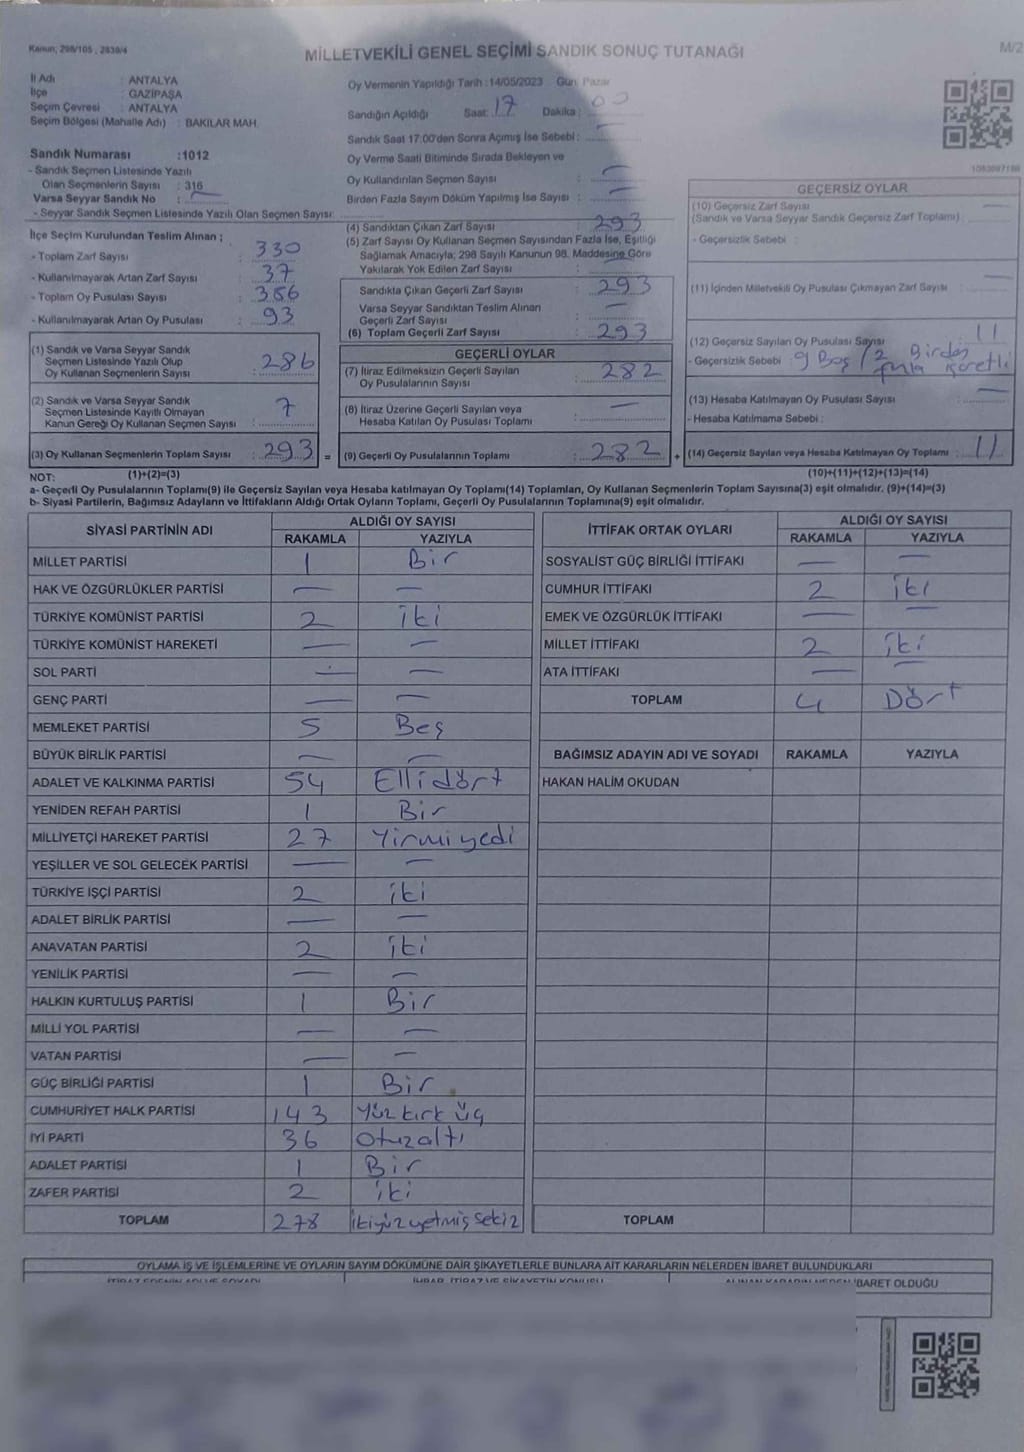 Kanun; 298/105 , 2839/4
MİLLETVEKİLİ GENEL SEÇİMİ SANDIK SONUÇ TUTANAĞI
M/2
İl Adı : ANTALYA
İlçe : GAZİPAŞA
Seçim Çevresi : ANTALYA
Seçim Bölgesi (Mahalle Adı) : BAKILAR MAH.
Oy Vermenin Yapıldığı Tarih :14/05/2023 Gün: Pazar
Sandığın Açıldığı Saat: 17 Dakika : 00
Sandık Saat 17:00'den Sonra Açımış İse Sebebi :
Oy Verme Saati Bitiminde Sırada Bekleyen ve
Oy Kullandırılan Seçmen Sayısı : —
Birden Fazla Sayım Döküm Yapılmış İse Sayısı : —
Sandık Numarası :1012
- Sandık Seçmen Listesinde Yazılı
Olan Seçmenlerin Sayısı : 316
Varsa Seyyar Sandık No : —
- Seyyar Sandık Seçmen Listesinde Yazılı Olan Seçmen Sayısı:
İlçe Seçim Kurulundan Teslim Alınan ;
- Toplam Zarf Sayısı : 330
- Kullanılmayarak Artan Zarf Sayısı : 37
- Toplam Oy Pusulası Sayısı : 386
- Kullanılmayarak Artan Oy Pusulası : 93
(1) Sandık ve Varsa Seyyar Sandık
Seçmen Listesinde Yazılı Olup
Oy Kullanan Seçmenlerin Sayısı : 286
(2) Sandık ve Varsa Seyyar Sandık
Seçmen Listesinde Kayıtlı Olmayan
Kanun Gereği Oy Kullanan Seçmen Sayısı : 7
(3) Oy Kullanan Seçmenlerin Toplam Sayısı : 293 =
(4) Sandıktan Çıkan Zarf Sayısı : 293
(5) Zarf Sayısı Oy Kullanan Seçmen Sayısından Fazla İse, Eşitliği
Sağlamak Amacıyla; 298 Sayılı Kanunun 98. Maddesine Göre
Yakılarak Yok Edilen Zarf Sayısı : —
Sandıkta Çıkan Geçerli Zarf Sayısı : 293
Varsa Seyyar Sandıktan Teslim Alınan
Geçerli Zarf Sayısı : —
(6) Toplam Geçerli Zarf Sayısı : 293
GEÇERLİ OYLAR
(7) İtiraz Edilmeksizin Geçerli Sayılan
Oy Pusulalarının Sayısı : 282
(8) İtiraz Üzerine Geçerli Sayılan veya
Hesaba Katılan Oy Pusulası Toplamı : —
(9) Geçerli Oy Pusulalarının Toplamı : 282 +
GEÇERSİZ OYLAR
(10) Geçersiz Zarf Sayısı : —
(Sandık ve Varsa Seyyar Sandık Geçersiz Zarf Toplamı)
- Geçersizlik Sebebi :
(11) İçinden Milletvekili Oy Pusulası Çıkmayan Zarf Sayısı : —
(12) Geçersiz Sayılan Oy Pusulası Sayısı : 11
- Geçersizlik Sebebi : 9 Boş / 2 Birden fazla işaretli
(13) Hesaba Katılmayan Oy Pusulası Sayısı : —
- Hesaba Katılmama Sebebi :
(14) Geçersiz Sayılan veya Hesaba Katılmayan Oy Toplamı : 11
NOT: (1)+(2)=(3) (10)+(11)+(12)+(13)=(14)
a- Geçerli Oy Pusulalarının Toplamı(9) ile Geçersiz Sayılan veya Hesaba katılmayan Oy Toplamı(14) Toplamları, Oy Kullanan Seçmenlerin Toplam Sayısına(3) eşit olmalıdır. (9)+(14)=(3)
b- Siyasi Partilerin, Bağımsız Adayların ve İttifakların Aldığı Ortak Oyların Toplamı, Geçerli Oy Pusulalarının Toplamına(9) eşit olmalıdır.
SİYASİ PARTİNİN ADI ALDIĞI OY SAYISI
RAKAMLA YAZIYLA
MİLLET PARTİSİ 1 Bir
HAK VE ÖZGÜRLÜKLER PARTİSİ — —
TÜRKİYE KOMÜNİST PARTİSİ 2 iki
TÜRKİYE KOMÜNİST HAREKETİ — —
SOL PARTİ — —
GENÇ PARTİ — —
MEMLEKET PARTİSİ 5 Beş
BÜYÜK BİRLİK PARTİSİ — —
ADALET VE KALKINMA PARTİSİ 54 Ellidört
YENİDEN REFAH PARTİSİ 1 Bir
MİLLİYETÇİ HAREKET PARTİSİ 27 Yirmiyedi
YEŞİLLER VE SOL GELECEK PARTİSİ — —
TÜRKİYE İŞÇİ PARTİSİ 2 iki
ADALET BİRLİK PARTİSİ — —
ANAVATAN PARTİSİ 2 iki
YENİLİK PARTİSİ — —
HALKIN KURTULUŞ PARTİSİ 1 Bir
MİLLİ YOL PARTİSİ — —
VATAN PARTİSİ — —
GÜÇ BİRLİĞİ PARTİSİ 1 Bir
CUMHURİYET HALK PARTİSİ 143 Yüz kırk üç
İYİ PARTİ 36 Otuzaltı
ADALET PARTİSİ 1 Bir
ZAFER PARTİSİ 2 iki
TOPLAM 278 ikiyüzyetmişsekiz
İTTİFAK ORTAK OYLARI ALDIĞI OY SAYISI
RAKAMLA YAZIYLA
SOSYALİST GÜÇ BİRLİĞİ İTTİFAKI — —
CUMHUR İTTİFAKI 2 iki
EMEK VE ÖZGÜRLÜK İTTİFAKI — —
MİLLET İTTİFAKI 2 iki
ATA İTTİFAKI — —
TOPLAM 4 Dört
BAĞIMSIZ ADAYIN ADI VE SOYADI RAKAMLA YAZIYLA
HAKAN HALİM OKUDAN
TOPLAM
OYLAMA İŞ VE İŞLEMLERİNE VE OYLARIN SAYIM DÖKÜMÜNE DAİR ŞİKAYETLERLE BUNLARA AİT KARARLARIN NELERDEN İBARET BULUNDUKLARI
İTİRAZ EDENİN ADI VE SOYADI İHBAR, İTİRAZ VE ŞİKAYETİN KONUSU ALINAN KARARIN NEDEN İBARET OLDUĞU